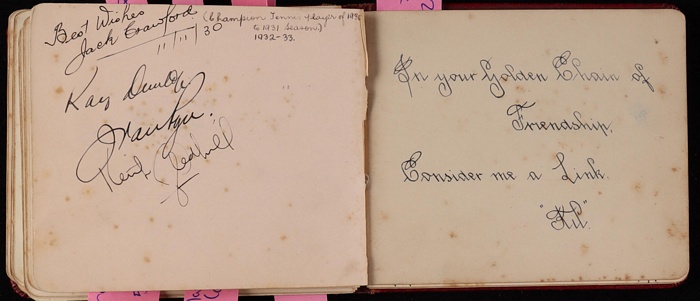 Best Wishes
Jack Crawford
11/11/30
(Champion Tennis Player of 1930
& 1931 Season)
1932-33.
Ray Dunlop
In your Golden Chain of
Friendship,
Consider me a Link.